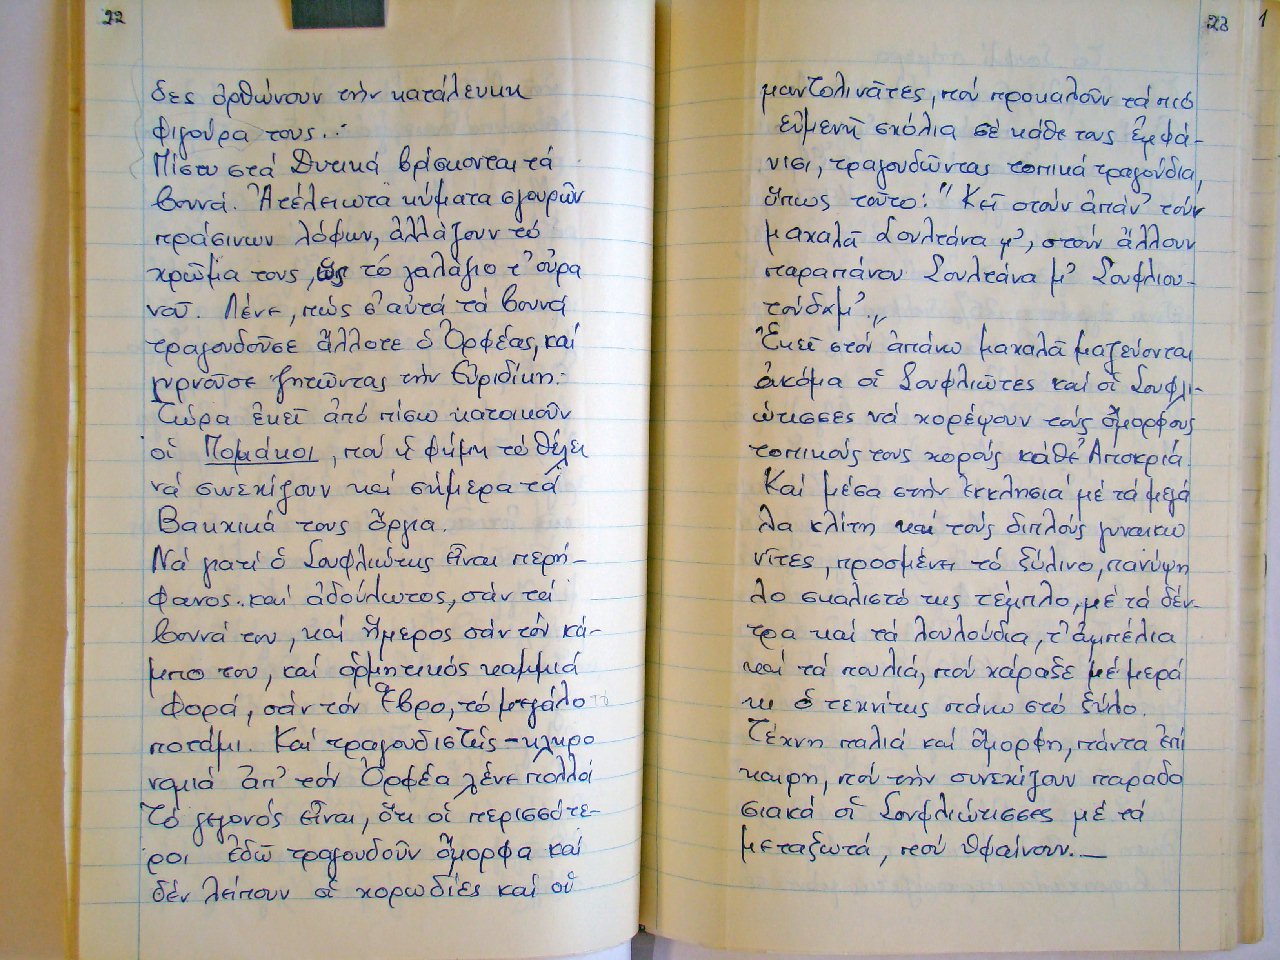 22
δες ὀρθώνουν τὴν κατάλευκη
φιγούρα τους..·
Πίσω στά Δυτικά βρίσκονται τά
βουνά. Ἀτέλειωτα κύματα σγουρῶν
πράσινων λόφων, ἀλλάζουν τό
χρῶμα τους, ὥς τό γαλάζιο τ' οὐρα
νοῦ. Λένε, πώς σ' αὐτά τά βουνά
τραγουδοῦσε ἄλλοτε ὁ Ὀρφέας, καί
γυρνοῦσε ζητῶντας τὴν Εὐριδίκη.
Τώρα ἐκεῖ ἀπό πίσω κατοικοῦν
οἱ Πομάκοι, πού ἡ φήμη τό θέλει
νά συνεχίζουν καί σήμερα τά
Βακχικά τους ὄργια.
Νά γιατί ὁ Σουφλιώτης εἶναι περή-
φανος. καί ἀδούλωτος, σάν τά
βουνά του, καί ἥμερος σάν τόν κά-
μπο του, καί ὁρμητικός καμμιά
φορά, σάν τόν Ἕβρο, τό μεγάλο
ποτάμι. Καί τραγουδιστής - κληρο
νομιά ἀπ' τόν Ὀρφέα λένε πολλοί
Τό γεγονός εἶναι, ὅτι οἱ περισσότε-
ροι ἐδῶ τραγουδοῦν ὄμορφα καί
δέν λείπουν οἱ χορωδίες καί οἱ
23
1
μαντολινᾶτες, πού προκαλοῦν τά πιό
εὐμενῆ σχόλια σέ κάθε τους ἐμφά-
νισι, τραγουδῶντας τοπικά τραγούδια,
ὅπως τοῦτο: "Κεῖ στούν ἀπάν' τούν
μαχαλᾶ Σουλτάνα μ', στούν ἄλλουν
παραπάνου Σουλτάνα μ' Σουφλιου-
τούδαμ'."
Ἐκεῖ στόν ἀπάνω μαχαλᾶ μαζεύονται
ἀκόμα οἱ Σουφλιῶτες καί οἱ Σουφλι-
ώτισσες νά χορέψουν τούς ὄμορφους
τοπικούς τους χορούς κάθε Ἀποκριά.
Καί μέσα στὴν ἐκκλησιά μέ τά μεγά
λα κλίτη καί τούς διπλούς γυναικω
νῖτες, προσμένει τό ξύλινο, πανύψη
λο σκαλιστό της τέμπλο, μέ τά δέν-
τρα καί τά λουλούδια, τ' ἀμπέλια
καί τά πουλιά, πού χάραξε μέ μερά
κι ὁ τεχνίτης πάνω στό ξύλο.
Τέχνη παλιά καί ὄμορφη, πάντα ἐπί
καιρη, πού τὴν συνεχίζουν παραδο
σιακά οἱ Σουφλιώτισσες μέ τά
μεταξωτά, πού ὑφαίνουν.—